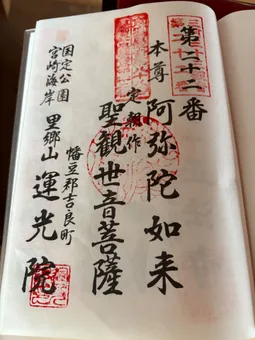 第二十二番
本尊 阿弥陀如来
定朝作
聖観世音菩薩
幡豆郡吉良町
里郷山 運光院
国定公園
宮崎海岸